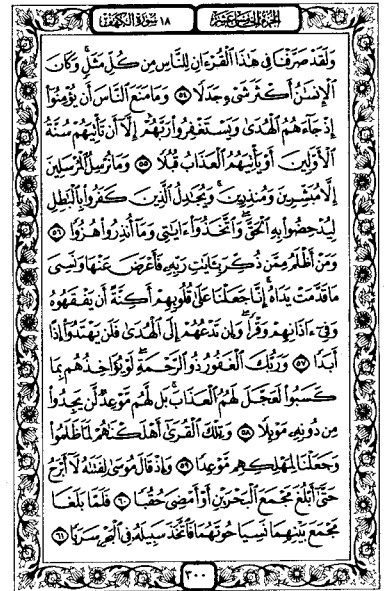 الجزء الخامس عشر ١٨ سورة الكهف
وَلَقَدْ صَرَّفْنَا فِي هَٰذَا الْقُرْءَانِ لِلنَّاسِ مِن كُلِّ مَثَلٍ وَكَانَ
الْإِنسَٰنُ أَكْثَرَ شَيْءٍ جَدَلًا ٥٤ وَمَا مَنَعَ النَّاسَ أَن يُؤْمِنُوٓا
إِذْ جَآءَهُمُ الْهُدَىٰ وَيَسْتَغْفِرُوا رَبَّهُمْ إِلَّآ أَن تَأْتِيَهُمْ سُنَّةُ
الْأَوَّلِينَ أَوْ يَأْتِيَهُمُ الْعَذَابُ قُبُلًا ٥٥ وَمَا نُرْسِلُ الْمُرْسَلِينَ
إِلَّا مُبَشِّرِينَ وَمُنذِرِينَ وَيُجَٰدِلُ الَّذِينَ كَفَرُوا بِالْبَٰطِلِ
لِيُدْحِضُوا بِهِ الْحَقَّ وَاتَّخَذُوٓا ءَايَٰتِي وَمَآ أُنذِرُوا هُزُوًا ٥٦
وَمَنْ أَظْلَمُ مِمَّن ذُكِّرَ بِـَٔايَٰتِ رَبِّهِ فَأَعْرَضَ عَنْهَا وَنَسِيَ
مَا قَدَّمَتْ يَدَاهُ إِنَّا جَعَلْنَا عَلَىٰ قُلُوبِهِمْ أَكِنَّةً أَن يَفْقَهُوهُ
وَفِيٓ ءَاذَانِهِمْ وَقْرًا وَإِن تَدْعُهُمْ إِلَى الْهُدَىٰ فَلَن يَهْتَدُوٓا إِذًا
أَبَدًا ٥٧ وَرَبُّكَ الْغَفُورُ ذُو الرَّحْمَةِ لَوْ يُؤَاخِذُهُم بِمَا
كَسَبُوا لَعَجَّلَ لَهُمُ الْعَذَابَ بَل لَّهُم مَّوْعِدٌ لَّن يَجِدُوا
مِن دُونِهِ مَوْئِلًا ٥٨ وَتِلْكَ الْقُرَىٰٓ أَهْلَكْنَٰهُمْ لَمَّا ظَلَمُوا
وَجَعَلْنَا لِمَهْلِكِهِم مَّوْعِدًا ٥٩ وَإِذْ قَالَ مُوسَىٰ لِفَتَىٰهُ لَآ أَبْرَحُ
حَتَّىٰٓ أَبْلُغَ مَجْمَعَ الْبَحْرَيْنِ أَوْ أَمْضِيَ حُقُبًا ٦٠ فَلَمَّا بَلَغَا
مَجْمَعَ بَيْنِهِمَا نَسِيَا حُوتَهُمَا فَاتَّخَذَ سَبِيلَهُ فِي الْبَحْرِ سَرَبًا ٦١
٣٠٠